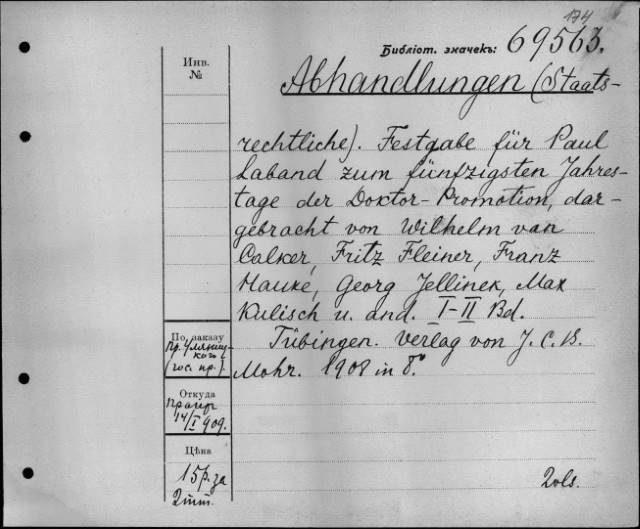 174
Библіот. значекъ: 69563.
Инв.
№
Abhandlungen (Staats-
rechtliche). Festgabe für Paul
Laband zum fünfzigsten Jahres-
tage der Doktor-Promotion, dar-
gebracht von Wilhelm van
Calker, Fritz Fleiner, Franz
Hauke, Georg Jellinek, Max
Kulisch u. and. I-II Bd.
Tübingen. Verlag von J. C. B.
Mohr. 1908 in 8°
По заказу
пр.
(гос. пр.)
Откуда
14/I 909.
Цѣна
15р. за
2 тт.
2 vls.